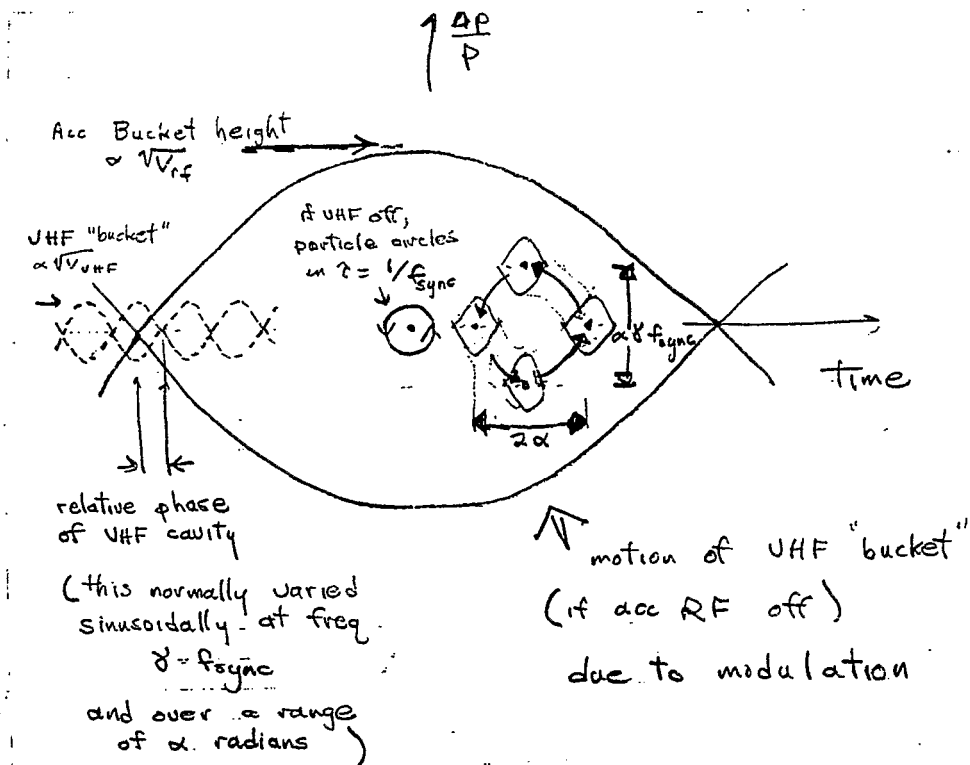 Δp
p
Acc Bucket height
∝ √Vrf
UHF "bucket"
∝ √VUHF
if UHF off,
particle circles
in τ = 1/fsync
α γ fsync
Time
2α
relative phase
of UHF cavity
(this normally varied
sinusoidally at freq.
γ = fsync
and over a range
of α radians)
motion of UHF "bucket"
(if acc RF off)
due to modulation